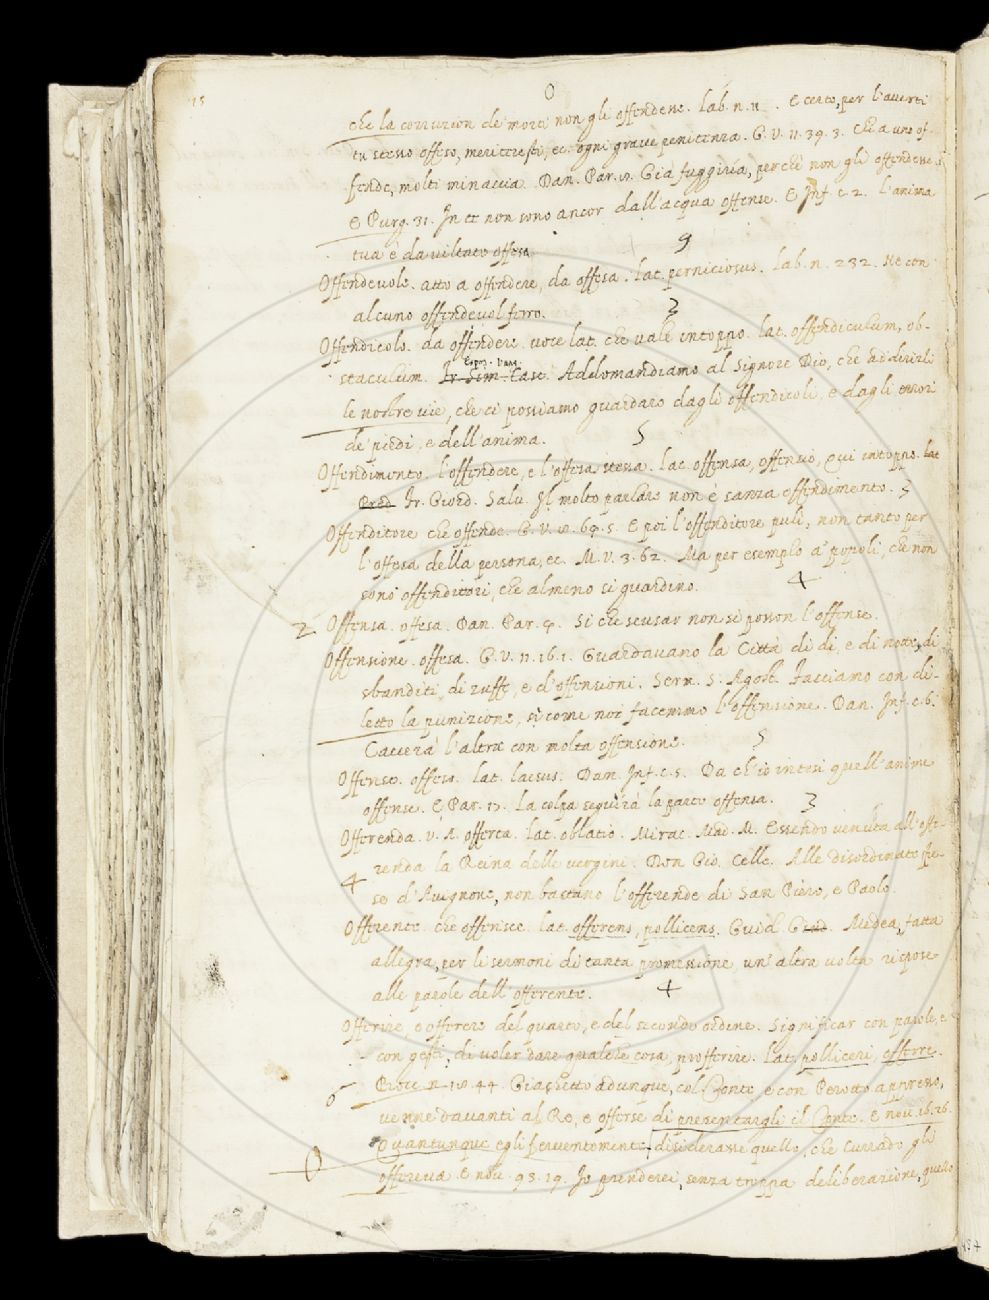 O
che la corruzion de' morti non gli offendesse. Lab. n. 11. E certo, per l'averti
tu stesso offeso, meriteresti, ec. ogni grave penitenza. G. V. 11. 39. 3. Chi a uno of-
fende, molti minaccia. Dan. Par. Già fuggiria, perchè non gli offendesse.
E Purg. 31. In te non sono ancor dall'acqua offense. E Inf. c. 2. L'anima
tua è da viltate offesa.
9
Offendevole. atto a offendere, da offesa. lat. perniciosus. Lab. n. 232. Nè con
alcuno offendevol ferro.
3
Offendicolo. da offendere voce lat. che vale intoppo. lat. offendiculum, ob-
staculum. Fr. Sim. Casc. Addomandiamo al Signore Dio, che addirizzi
le nostre vie, che ci possiamo guardare dagli offendicoli, e dagli errori
de' piedi, e dell'anima.
5
Offendimento. l'offendere, e l'offesa stessa. lat. offensa, offensio, qui intoppo. lat
Fr. Giord. Salv. Il molto parlare non è sanza offendimento. 3
Offenditore che offende. G. V. 69. 5. E poi l'offenditore puli, non tanto per
l'offesa della persona, ec. M. V. 3. 62. Ma per esemplo a' popoli, che non
sono offenditori, che almeno si guardino.
4
2 Offensa. offesa. Dan. Par. 4. Si che scusar non si posson l'offense.
Offensione. offesa. G. V. 11. 16. 1. Guardavano la Città di dì, e di notte, di
sbanditi, di zuffe, e d'offensioni. Serm. S. Agost. Facciamo con di-
letto la punizione, sì come noi facemmo l'offensione. Dan. Inf. c. 6.
Caccerà l'altra con molta offensione.
5
Offenso. offeso. lat. laesus. Dan. Inf. c. 5. Da ch'io intesi quell'anime
offense. E Par. 17. La colpa seguirà la parte offensa.
3
Offerenda. V. A. offerta. lat. oblatio. Mirac. Mad. M. Essendo venuta all'offe-
renda la Reina delle vergini. Don Gio. Celle. Alle disordinate spe-
4
se d'Avignone, non bastano l'offerende di San Piero, e Paolo.
Offerente. che offerisce. lat. offerens, pollicens. Guid. G. Medea, fatta
allegra, per li sermoni di tanta promessione, un'altra volta rispose
alle parole dell'offerente.
4
Offerire, e offerere del quarto, e del secondo ordine. Significar con parole, e
con gesti, di voler dare qualche cosa, profferire. lat. polliceri, offerre.
6
Bocc. n. 18. 44. Giachetto adunque, col Conte, e con Perotto
venne davanti al Re, e offerse di presentargli il Conte. E nov. 16. 26.
Quantunque egli ferventemente disiderasse quello, che Currado gli
O
offereva. E nov. 93. 19. Io prenderei, senza troppa deliberazione, quello